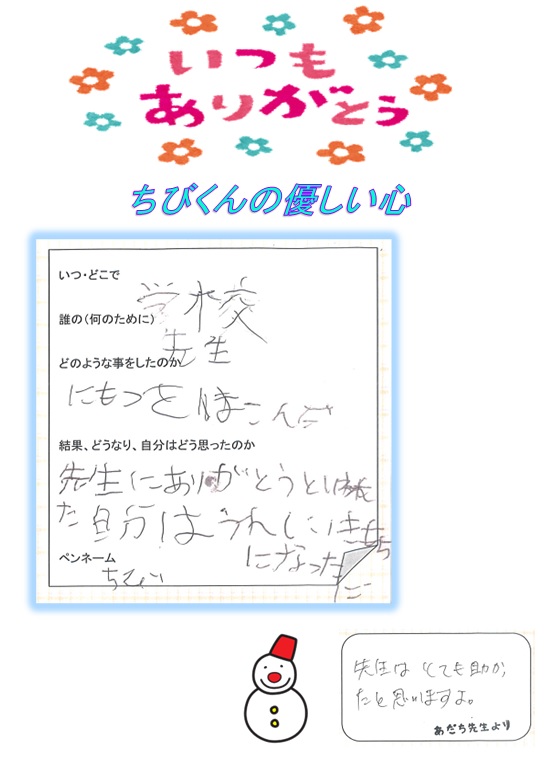 いつも
ありがとう
ちびくんの優しい心
いつ・どこで
学校
誰の（何のために）
先生
どのような事をしたのか
にもつを
結果、どうなり、自分はどう思ったのか
先生にありがとうと
た自分はうれしい
になった
ペンネーム
ちび
先生はとても助かっ
たと思いますよ。
あだち先生より